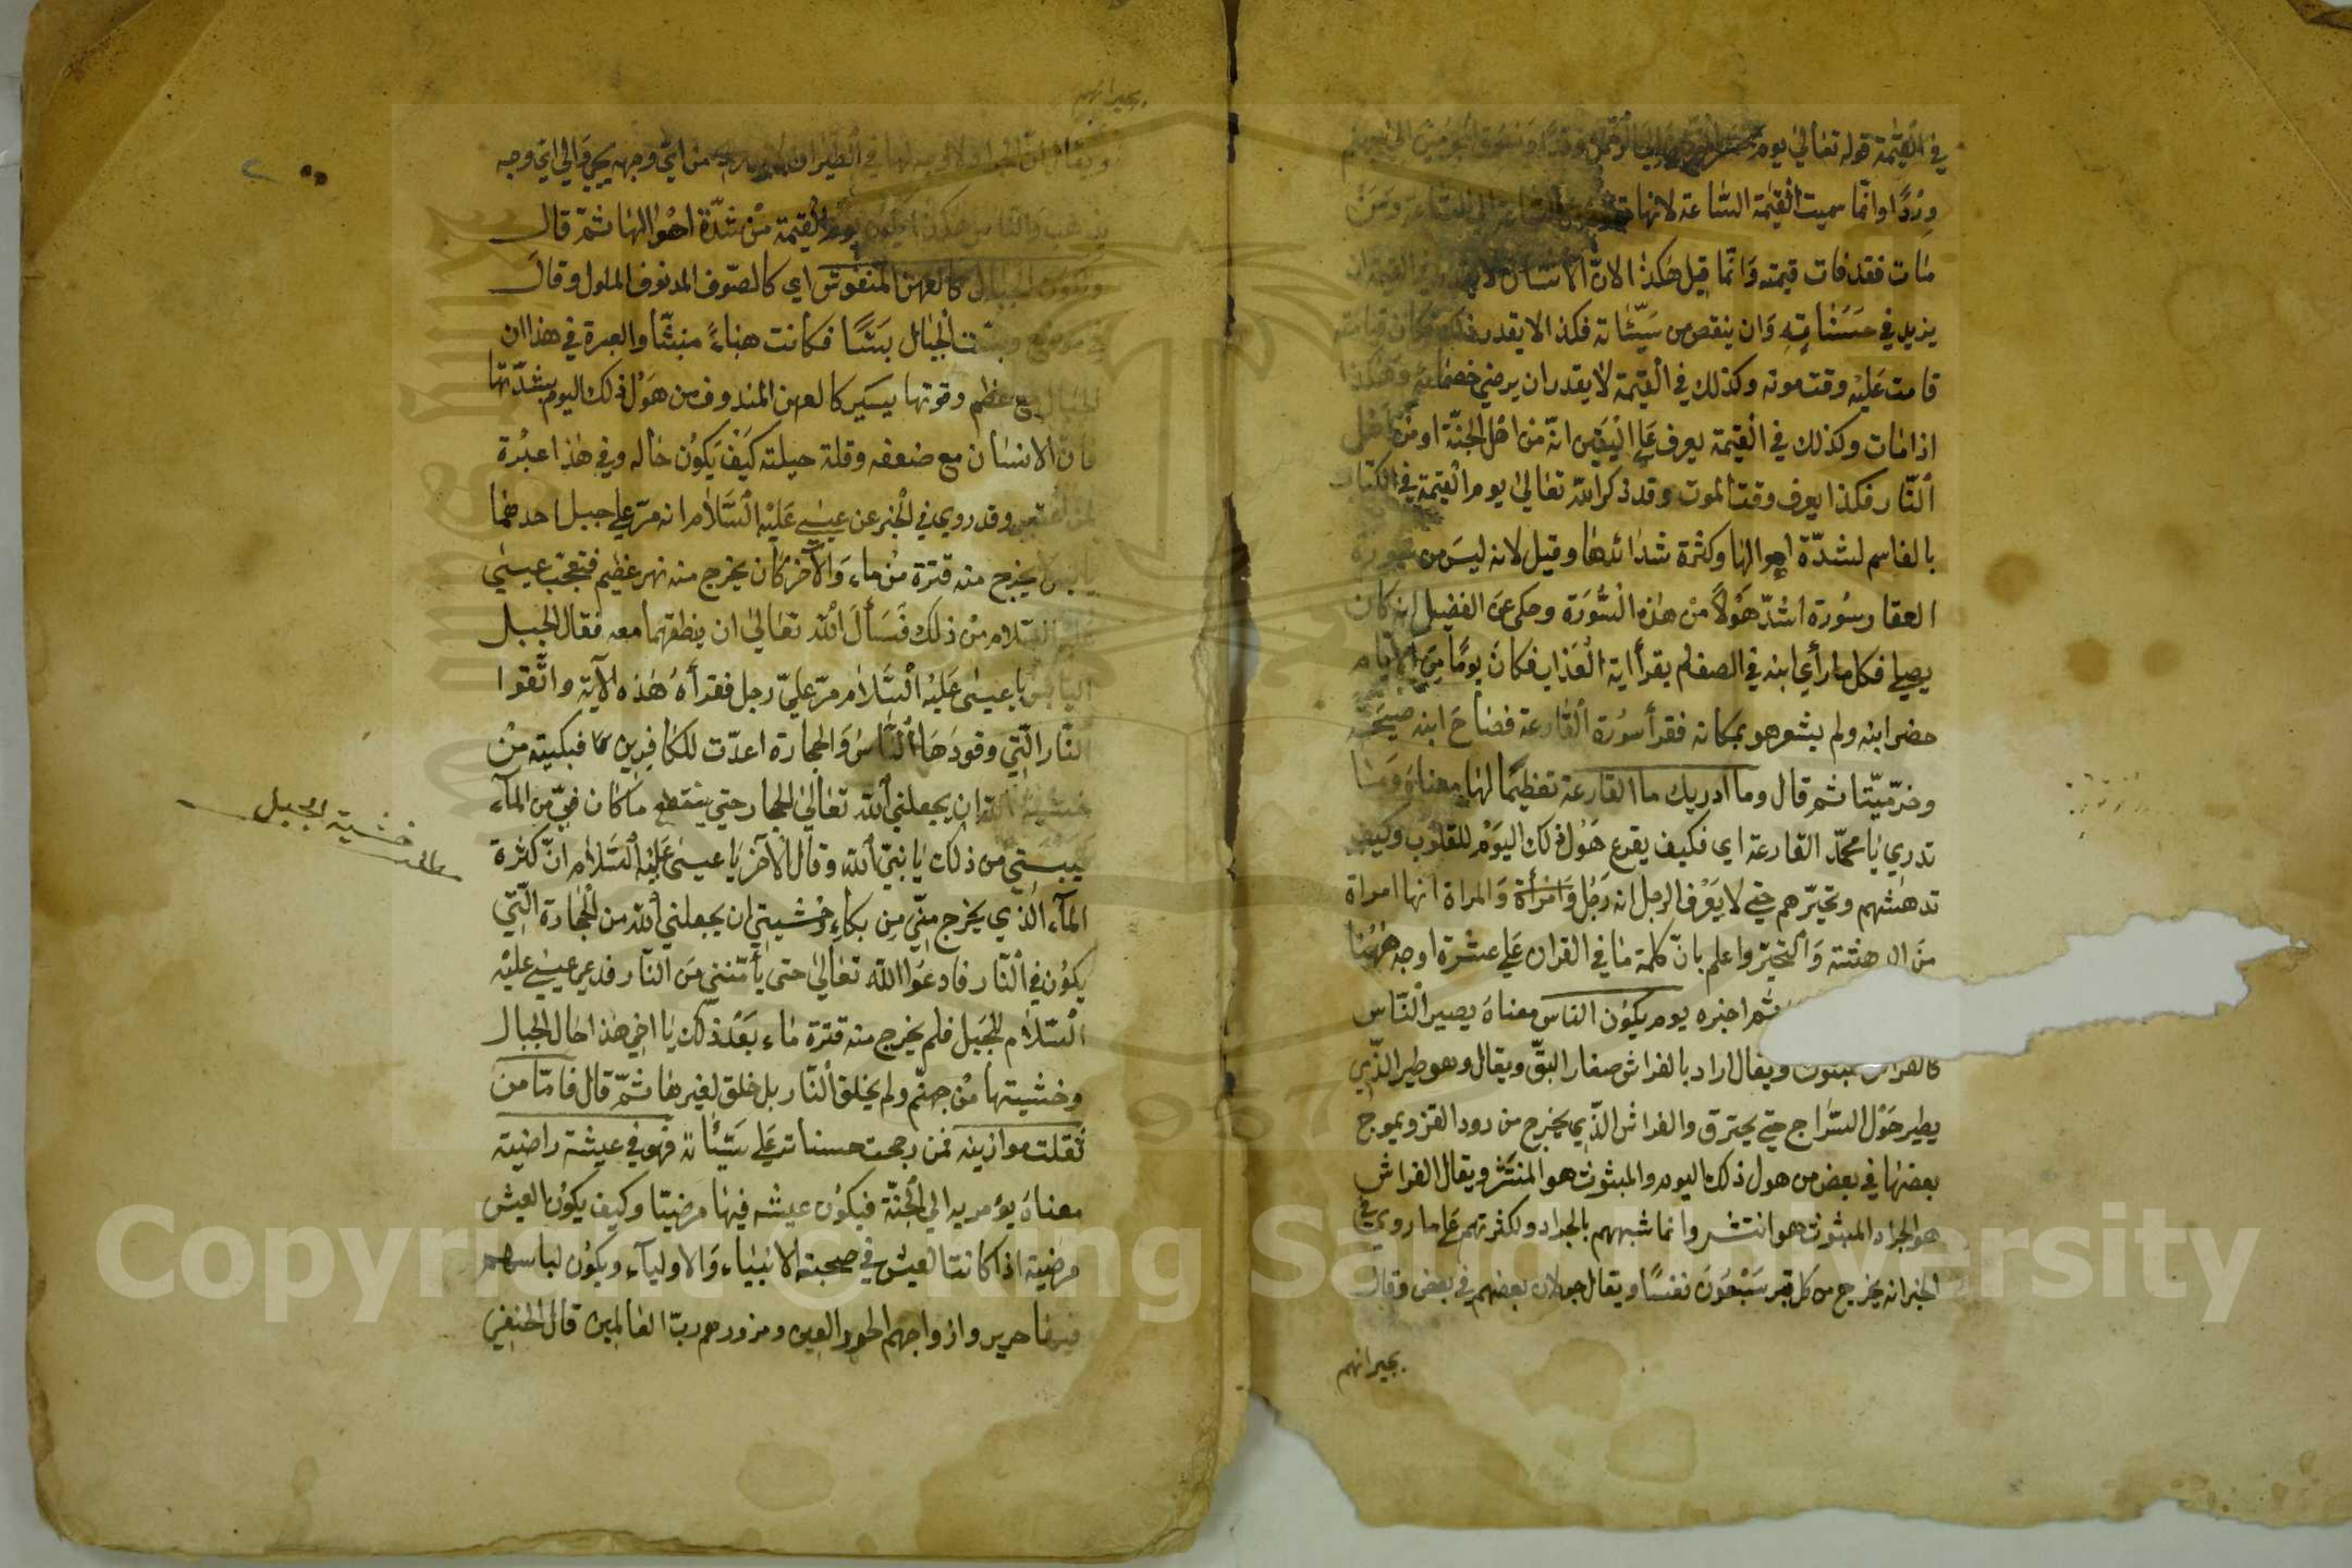 في القيمة قوله تعالى يوم نحشر المتقين الى الرحمن وفدا ونسوق المجرمين الى جهنم
وِرْدًا وانما سميت القيمة الساعة لانها
مات فقد قامت قيمته وَانّما قيل هكذا لانّ الانسان لا يقدر في القيمة ان
يزيد في حسناته وَان ينقص من سيّئاته فكذا لا يقدر فكان قيامته
قامت عَليْه وقت موته وكذلك في القيمة لا يقدر ان يرضي خصماءه وهكذا
اذا مات وكذلك في القيمة يعرف على اليقين انّه من اهْل الجنّة او من اهْل
النّار فكذا يعرف وقت الموت وقد ذكر الله تعالى يوم القيمة في الكتاب
بالقاسم لشدّة اهوالها وكثرة شدائدها وقيل لانه ليسَ من سورة
العقار سُورة اشدّ هَوْلاً منْ هذه السُّورَة وحكى عن الفضيل انه كان
يصلي فكل ما رأي ابنه في الصف لم يقرأ اية الْعَذاب فكانَ يومًا مِنَ الايام
حضر ابنه ولم يشعر هو بمكانه فقرأ سُورة القارعة فصَاحَ ابنه صيحَة
وخرّ ميّتا ثم قال وما ادريك ما القارعة تعظيمًا لها معناه وَمَا
تدري يا محمّد القارعة اى فكيف يقرع هَوْل ذلك اليَوْم للقلوُب وكيف
تدهشهم وتحيّرهم حتى لا يَعْرف الرجل انه رَجُل وَامْرأة وَالمراة انها امراة
مَن الدهشة وَالتحيّر واعلم بانّ كلمة ما في القران على عشرة اوجه ههُنا
ثم اخبره يوم يكوُن الناس معناه يصير النّاس
كالفراش المبثوث ويقال اراد بالفراش صغار البقّ ويقال وهو طير الذّي
يطير حَوْل السّراج حتى يحترق والفراش الذّي يخرج من دود القز ويموج
بعضها في بعض من هول ذلك اليوم والمبثوث هو المنتشر ويقال الفراش
هو الجراد المبثوث هو انتشر وانما شبههم بالجراد ولكثرتهم على ما روي في
الخبر انه يخرج من كل قبر سَبْعُونَ نفسًا ويقال جولان بعضهم في بعض وقال
بحيرانهم
بحيرانهم
ويقال لانّ الجراد لا وجه لها في الطيران من ايّ وجهه يجئ والى ايّ وجه
يذهب والناس هكذا يكون يوم القيمة منْ شدّة اهْوالها ثمّ قال
وتكون الجبال كالعهن المنفوش اى كالصّوف المدنوف الملول وقال
في موضع وبسّت الجبال بَسّا فكانت هباءً منبثّا والعبرة في هذا ان
الجبال مع عظم وقوتها يسَير كالعهن المندوف من هَوْل ذلك اليوم بشدّتها
فان الانسان مع ضعفه وقلة حيلته كيَفْ يَكوُن حَاله وفي هذا عبْرة
وقد روى في الخبر عن عيسى عَليْه السَّلام انه مرّ على جبل احدهما
يابس يخرج منه قترة منْ ماء وَالآخر كان يخرج منه نهر عظيم فتعجّب عيسى
عليه السّلام منْ ذلك فَسَألَ الله تعَالى ان ينطقهما معه فقال الجبل
اليابس يا عيسى عَليْه السَّلام مرّ عليّ رجل فقرأ هذه الآية واتّقوا
النّار الّتي وقودَها النَّاسُ وَالحجارة اعدّت للكافِرين فبكيته مِنْ
خشية الله ان يجعلني الله تعالى الحجار حتى ينقطع ما كان فيّ من الماء
يبستي من ذلك يا نبيّ الله وقال الآخر يا عيسى عَليْه السَّلام انّ كثرة
الماء الذّي يخرج منّي مِن بكاءِ خُشيتي ان يجعلني الله من الحجارة الّتي
يكوُن في النّار فادعُوا الله تعالى حتى يأمّنني مَن النّار فدعى عيسى عليْه
السّلام لجبَل فلم يخرج منه قترة ماء بَعْد ذلك يا اخي هذا حال الجبال
وخشيتها منْ جهنّم ولم يخلق النّار بل خلق لغيرها ثمّ قال فامّا من
ثقلت موازينه فمن رجحت حسناته على سَيّئاته فهو في عيشة راضية
معناه يؤمر به الي الجنّة فيكوُن عيشه فيها مرضيّا وكيف يكوُن العيش
مرضية اذا كانت العيش في صحبة الانبياء وَالاولياء ويكون لباسهم
فيها حرير وازواجهم الحور العين ومزورهم ربّ العَالمين قال الحنفي
خشية الجبل
Copyright © King Saud University
1957